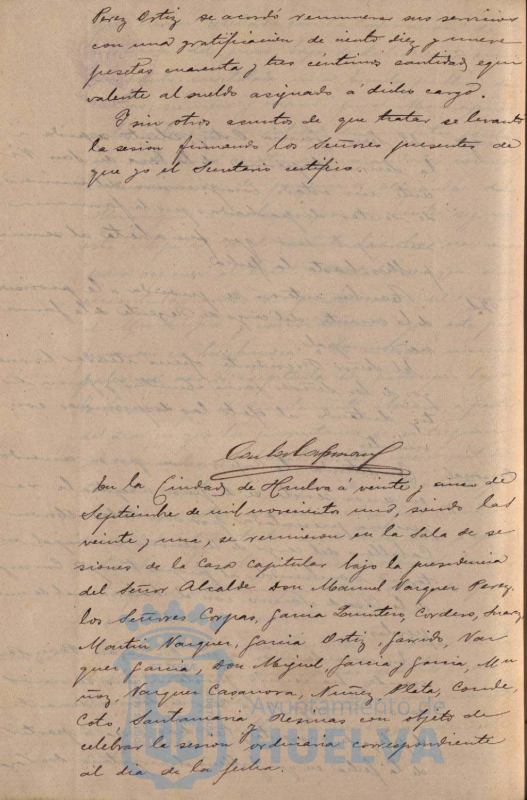 Perez Ortiz se acordó remunerar sus servicios
con una gratificacion de ciento diez y nueve
pesetas cuarenta y tres céntimos cantidad equi
valente al sueldo asignado á dicho cargo.
Y sin otros asuntos de que tratar se levantó
la sesion firmando los Señores presentes de
que yo el Secretario certifico.
En la Ciudad de Huelva á veinte y cinco de
Septiembre de mil novecientos uno, siendo las
veinte y una, se reunieron en la Sala de se
siones de la Casa capitular bajo la presidencia
del Señor Alcalde Don Manuel Vazquez Perez,
los Señores Corpas, Garcia Quintero, Cordero,
Martin Vazquez, Garcia Ortiz, Garrido, Vaz
quez Garcia, Don Miguel Garcia y Garcia, Mu
ñoz, Vazquez Casanova, Nuñez, Plata, Conde,
Coto, Santamaria y Resinas con objeto de
celebrar la sesion ordinaria correspondiente
al dia de la fecha.
Ayuntamiento de
HUELVA